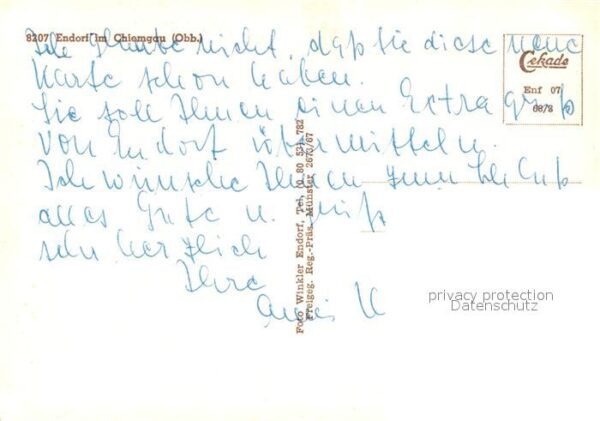 8207 Endorf im Chiemgau (Obb.)
Ich glaube nicht, daß Sie diese neue
Karte schon haben.
Sie soll Ihnen einen Extragruß
von Endorf übermitteln.
Ich wünsche Ihnen zum Schluß
alles Gute u. grüß
sehr herzlich
Ihre
K
Cekade
Enf 07
68/8
Foto Winkler Endorf, Tel. (0 80 53) 782
Freigeg. Reg.-Präs. Münster 2673/67
privacy protection
Datenschutz